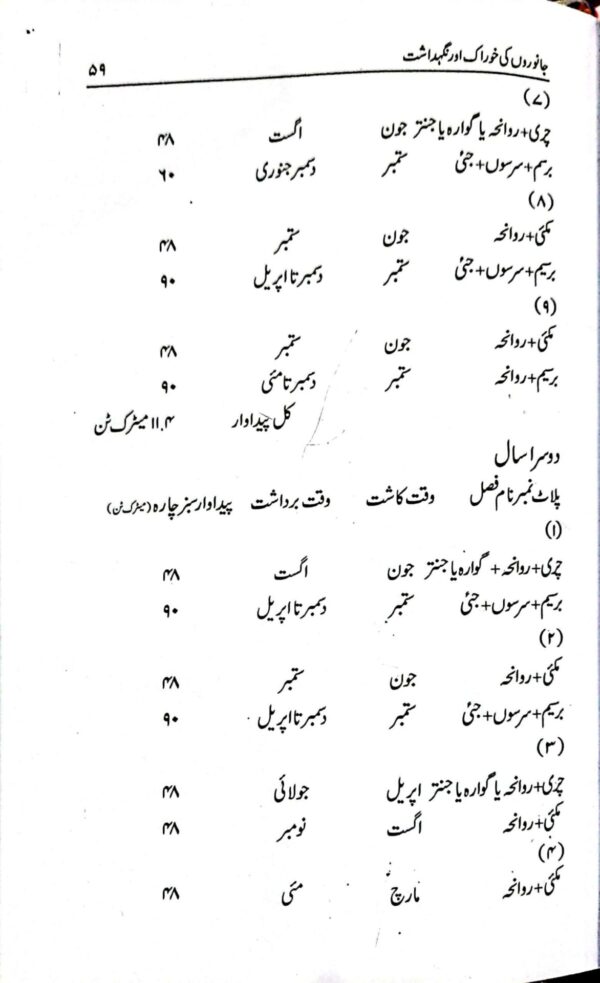 جانوروں کی خوراک اور نگہداشت ۵۹
(۷)
چری+روانحہ یا گوارہ یا جنتر جون اگست ۴۸
برسیم+سرسوں+جئی ستمبر دسمبر جنوری ۶۰
(۸)
مکئی+روانحہ جون ستمبر ۴۸
برسیم+سرسوں+جئی ستمبر دسمبر تا اپریل ۹۰
(۹)
مکئی+روانحہ جون ستمبر ۴۸
برسیم+روانحہ ستمبر دسمبر تا مئی ۹۰
کل پیداوار ۱۱.۴ میٹرک ٹن
دوسرا سال
پلاٹ نمبر نام فصل وقت کاشت وقت برداشت پیداوار سبز چارہ (میٹرک ٹن)
(۱)
چری+روانحہ+ گوارہ یا جنتر جون اگست ۴۸
برسیم+سرسوں+جئی ستمبر دسمبر تا اپریل ۹۰
(۲)
مکئی+روانحہ جون ستمبر ۴۸
برسیم+سرسوں+جئی ستمبر دسمبر تا اپریل ۹۰
(۳)
چری+روانحہ یا گوارہ یا جنتر اپریل جولائی ۴۸
مکئی+روانحہ اگست نومبر ۴۸
(۴)
مکئی+روانحہ مارچ مئی ۴۸